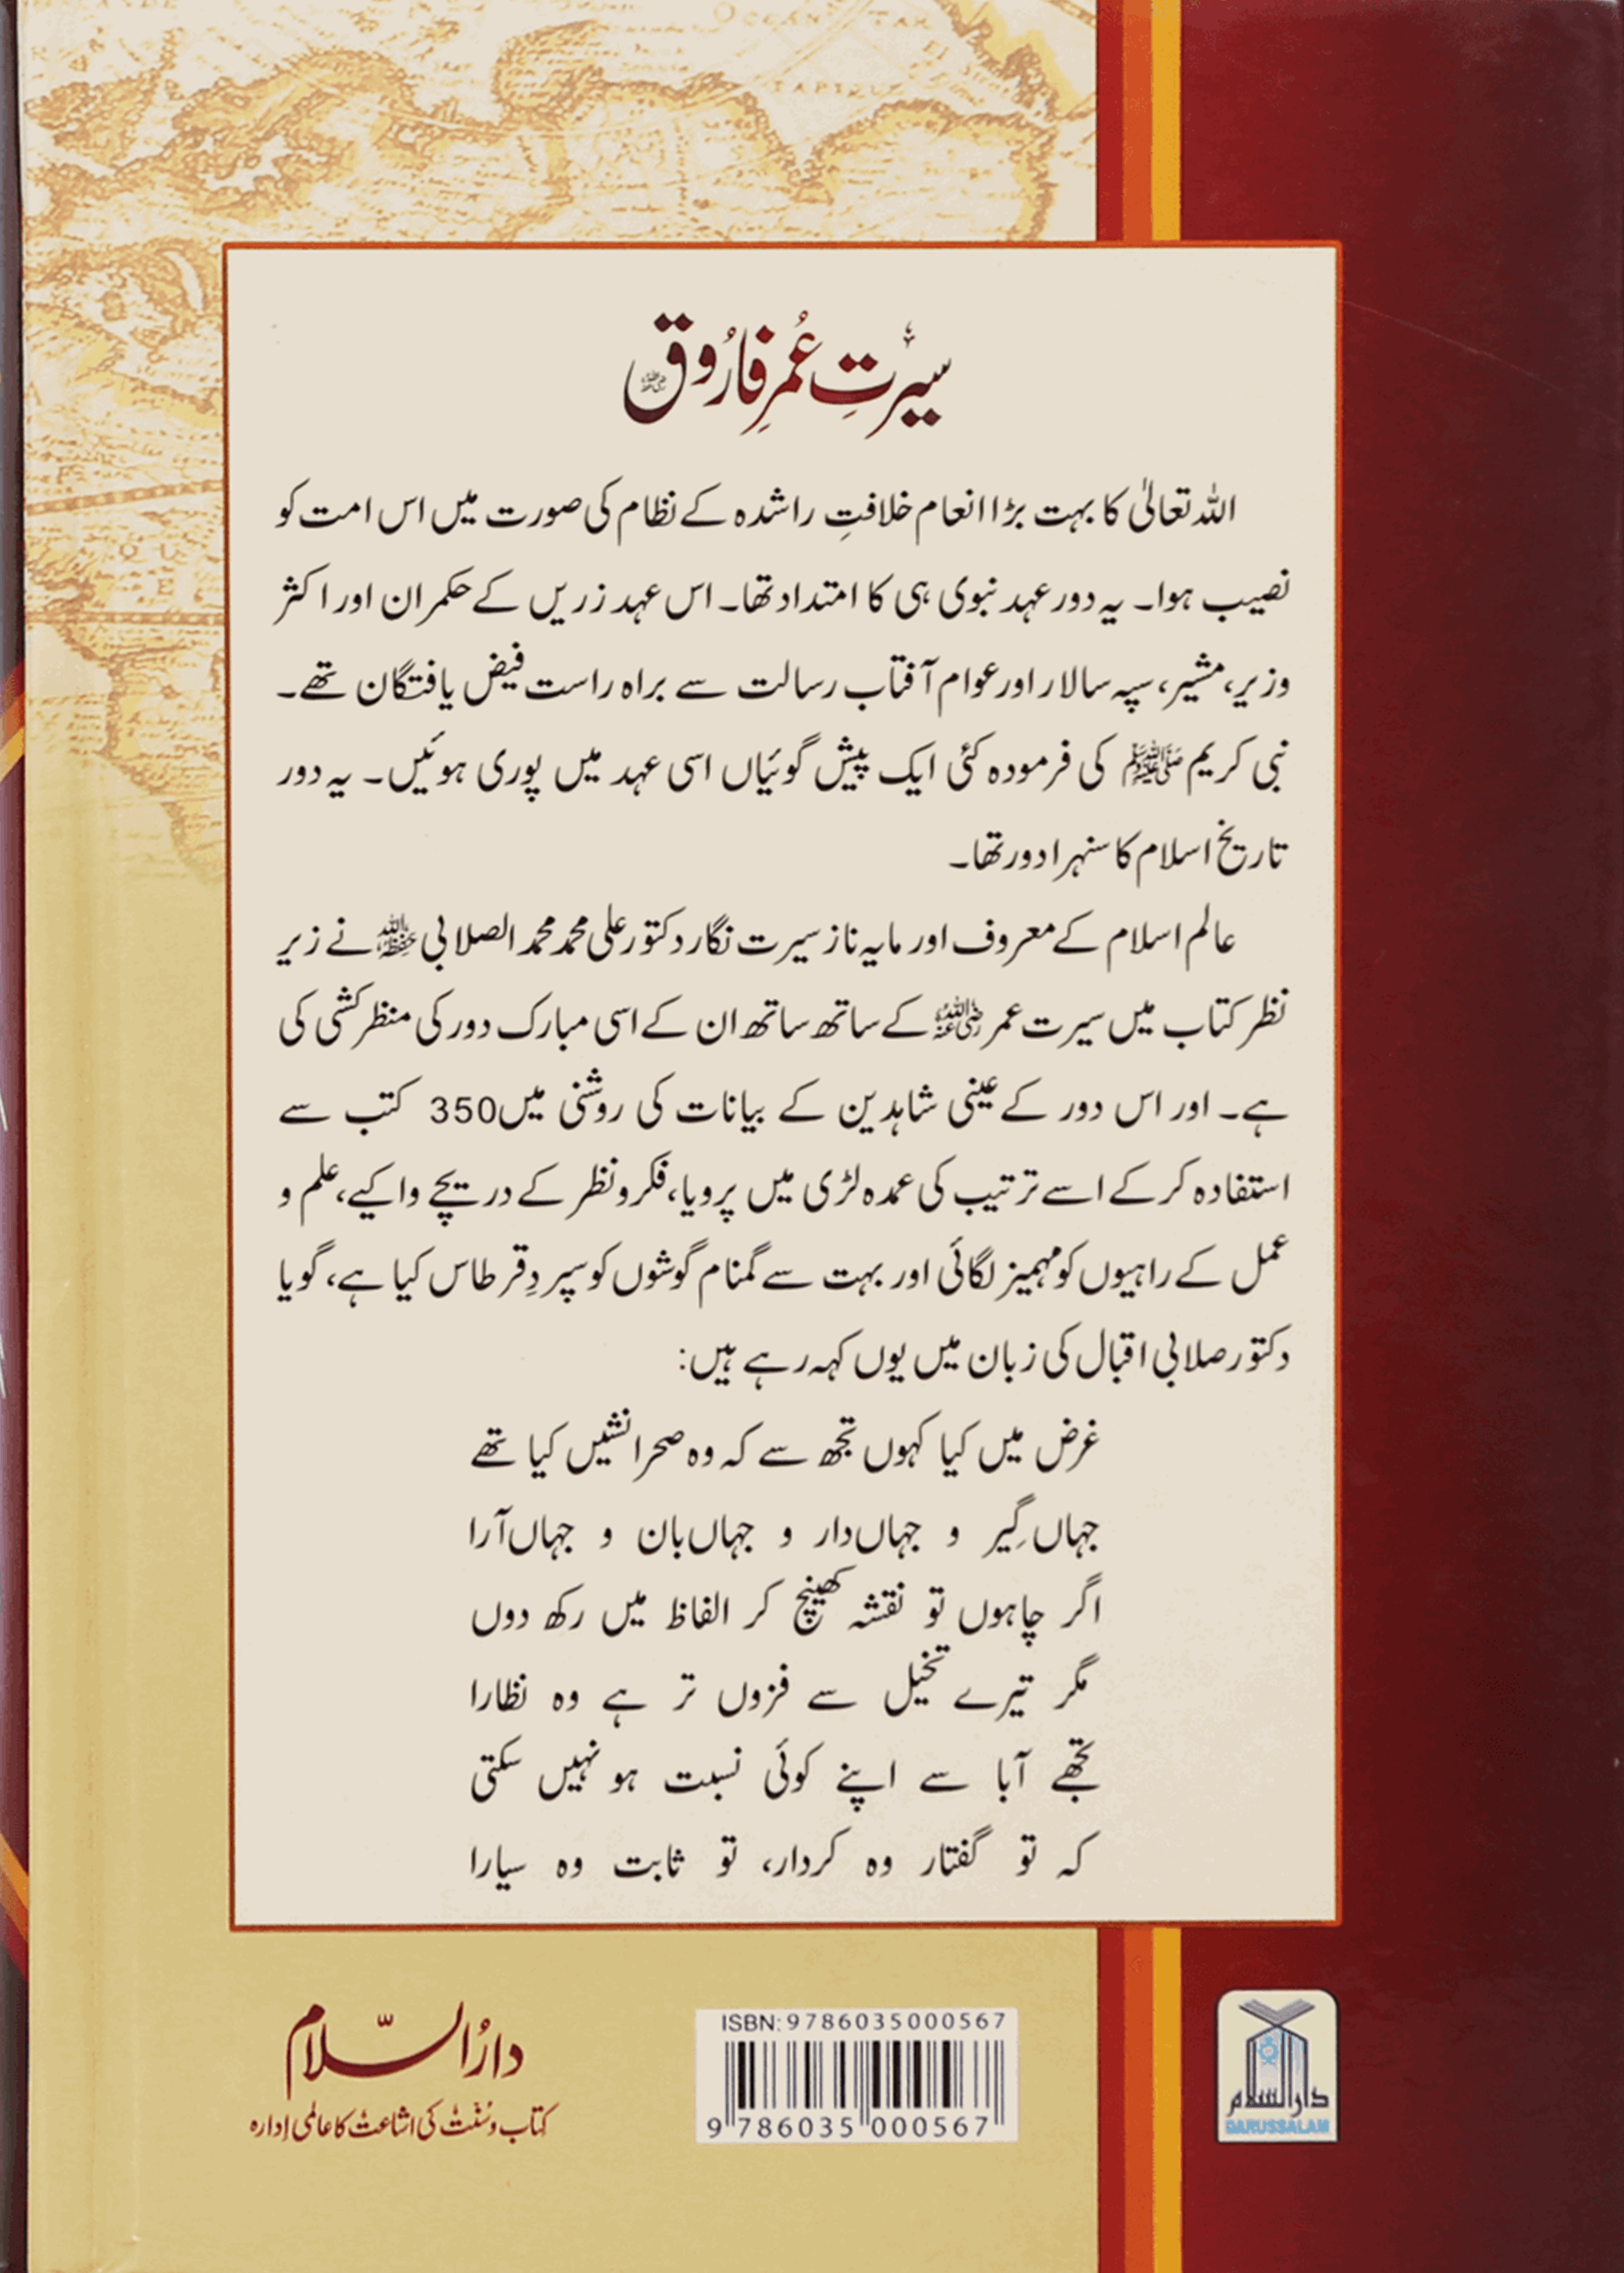 سیرتِ عُمرِ فارُوق رضی اللہ عنہ
اللہ تعالیٰ کا بہت بڑا انعام خلافتِ راشدہ کے نظام کی صورت میں اس امت کو
نصیب ہوا۔ یہ دور عہد نبوی ہی کا امتداد تھا۔ اس عہد زریں کے حکمران اور اکثر
وزیر، مشیر، سپہ سالار اور عوام آفتاب رسالت سے براہ راست فیض یافتگان تھے۔
نبی کریم ﷺ کی فرمودہ کئی ایک پیش گوئیاں اسی عہد میں پوری ہوئیں۔ یہ دور
تاریخ اسلام کا سنہرا دور تھا۔
عالم اسلام کے معروف اور مایہ ناز سیرت نگار دکتور علی محمد محمد الصلابی حفظہ اللہ نے زیر
نظر کتاب میں سیرت عمر رضی اللہ عنہ کے ساتھ ساتھ ان کے اسی مبارک دور کی منظر کشی کی
ہے۔ اور اس دور کے عینی شاہدین کے بیانات کی روشنی میں 350 کتب سے
استفادہ کر کے اسے ترتیب کی عمدہ لڑی میں پرویا، فکر و نظر کے دریچے وا کیے، علم و
عمل کے راہیوں کو مہمیز لگائی اور بہت سے گمنام گوشوں کو سپردِ قرطاس کیا ہے، گویا
دکتور صلابی اقبال کی زبان میں یوں کہہ رہے ہیں:
غرض میں کیا کہوں تجھ سے کہ وہ صحرا نشیں کیا تھے
جہاں گیر و جہاں دار و جہاں بان و جہاں آرا
اگر چاہوں تو نقشہ کھینچ کر الفاظ میں رکھ دوں
مگر تیرے تخیل سے فزوں تر ہے وہ نظارا
تجھے آبا سے اپنے کوئی نسبت ہو نہیں سکتی
کہ تو گفتار وہ کردار، تو ثابت وہ سیارا
دارُالسّلام
کتاب و سُنّت کی اشاعت کا عالمی اِدارہ
ISBN: 9786035000567
9 786035 000567
دارالسلام
DARUSSALAM